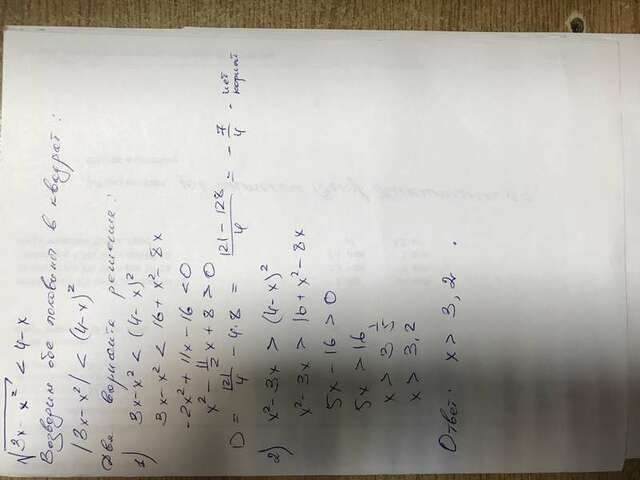 √3x - x² < 4 - x
Возведем обе половины в квадрат:
|3x - x²| < (4 - x)²
Два варианта решения:
1) 3x - x² < (4 - x)²
3x - x² < 16 + x² - 8x
-2x² + 11x - 16 < 0
x² - 11/2 x + 8 > 0
D = 121/4 - 4·8 = 121 - 128/4 = - 7/4 - нет корней
2) x² - 3x > (4 - x)²
x² - 3x > 16 + x² - 8x
5x - 16 > 0
5x > 16
x > 3 1/5
x > 3,2
Ответ: x > 3,2.